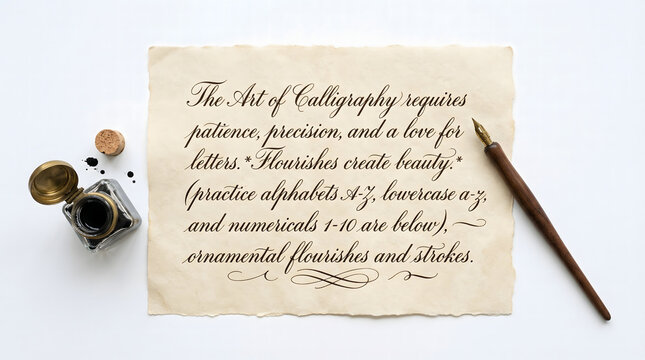 The Art of Calligraphy requires
patience, precision, and a love for
letters. *Flourishes create beauty.*
(practice alphabets A-Z, lowercase a-z,
and numericals 1-10 are below),
ornamental flourishes and strokes.